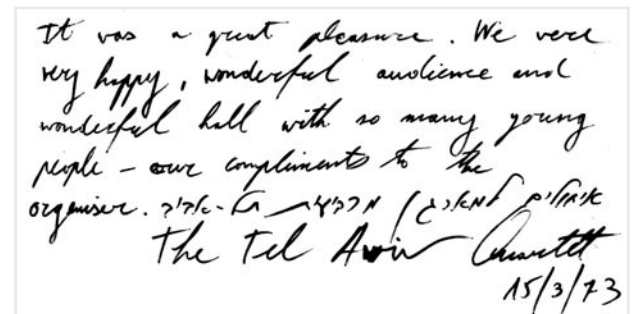 It was a great pleasure. We were
very happy, wonderful audience and
wonderful hall with so many young
people – our compliments to the
organiser. איחולים למארגן מרביעית תל-אביב
The Tel Aviv Quartett
15/3/73